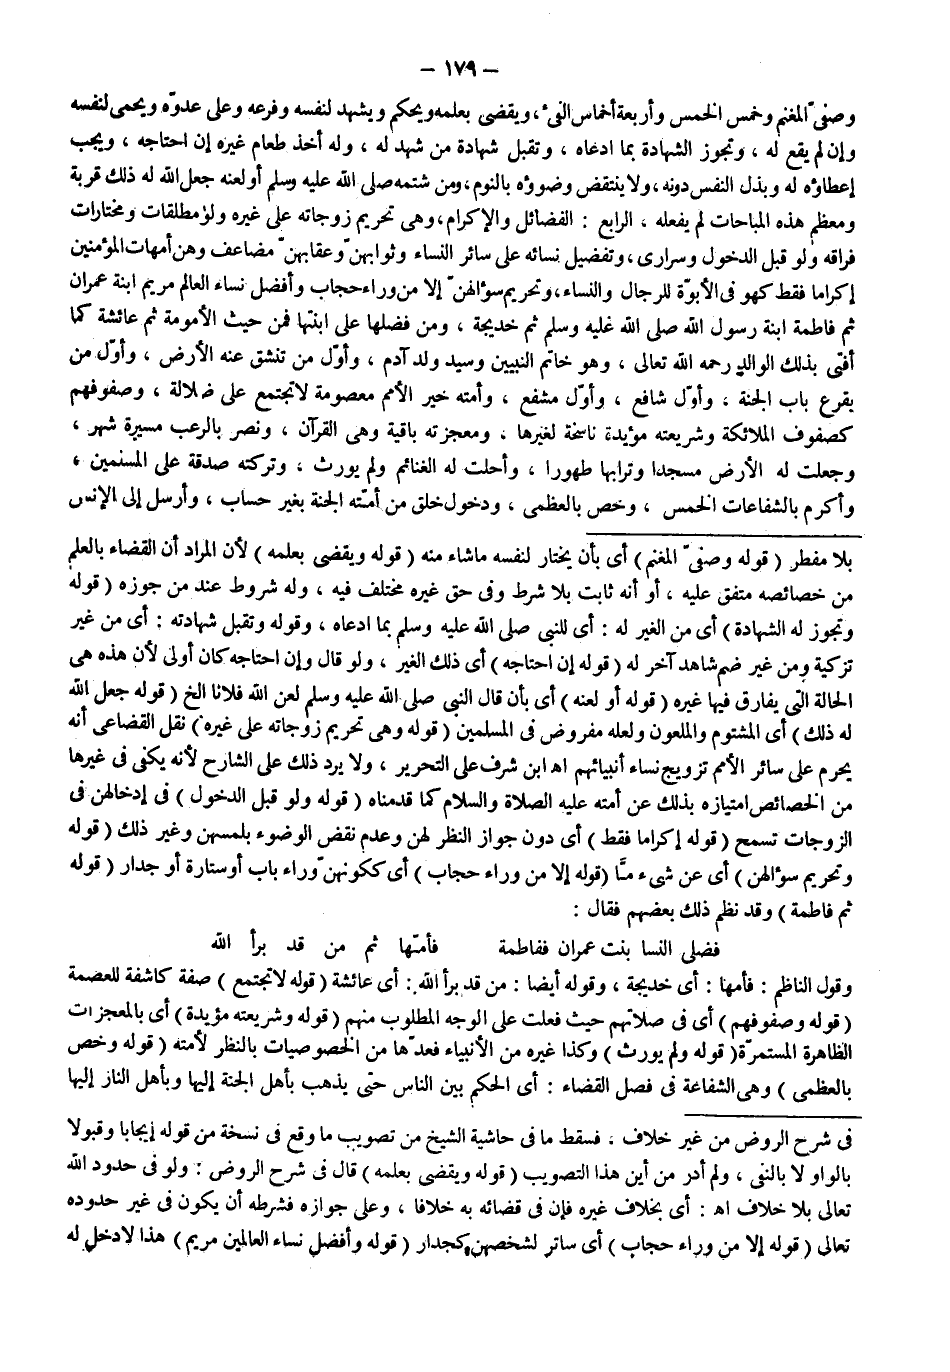 – ١٧٩ –
وصفىّ المغنم وخمس الخمس وأربعة أخماس الفىء، ويقضى بعلمه ويحكم ويشهد لنفسه وفرعه وعلى عدوّه ويحمى لنفسه
وإن لم يقع له ، وتجوز الشهادة بما ادعاه ، وتقبل شهادة من شهد له ، وله أخذ طعام غيره إن احتاجه ، ويجب
إعطاؤه له وبذل النفس دونه، ولا ينتقض وضوؤه بالنوم، ومن شتمه صلى الله عليه وسلم أو لعنه جعل الله له ذلك قربة
ومعظم هذه المباحات لم يفعله . الرابع : الفضائل والإكرام، وهى تحريم زوجاته على غيره ولو مطلقات ومختارات
فراقه ولو قبل الدخول وسرارى ، وتفضيل نسائه على سائر النساء وثوابهنّ وعقابهنّ مضاعف وهن أمهات المؤمنين
إكراما فقط كهو فى الأبوّة للرجال والنساء، وتحريم سؤالهنّ إلا من وراء حجاب وأفضل نساء العالم مريم ابنة عمران
ثم فاطمة ابنة رسول الله صلى الله عليه وسلم ثم خديجة ، ومن فضلها على ابنتها فمن حيث الأمومة ثم عائشة كما
أفتى بذلك الوالد رحمه الله تعالى ، وهو خاتم النبيين وسيد ولد آدم ، وأوّل من تنشق عنه الأرض ، وأوّل من
يقرع باب الجنة ، وأوّل شافع ، وأوّل مشفع ، وأمته خير الأمم معصومة لاتجتمع على ضلالة ، وصفوفهم
كصفوف الملائكة وشريعته مؤيدة ناسخة لغيرها ، ومعجزته باقية وهى القرآن ، ونصر بالرعب مسيرة شهر ،
وجعلت له الأرض مسجدا وترابها طهورا ، وأحلت له الغنائم ولم يورث ، وتركته صدقة على المسلمين ،
وأكرم بالشفاعات الخمس ، وخص بالعظمى ، ودخول خلق من أمته الجنة بغير حساب ، وأرسل إلى الإنس
بلا مفطر ( قوله وصفىّ المغنم ) أى بأن يختار لنفسه ماشاء منه ( قوله ويقضى بعلمه ) لأن المراد أن القضاء بالعلم
من خصائصه متفق عليه ، أو أنه ثابت بلا شرط وفى حق غيره مختلف فيه ، وله شروط عند من جوزه ( قوله
وتجوز له الشهادة ) أى من الغير له : أى للنبى صلى الله عليه وسلم بما ادعاه ، وقوله وتقبل شهادته : أى من غير
تزكية ومن غير ضم شاهد آخر له ( قوله إن احتاجه ) أى ذلك الغير ، ولو قال وإن احتاجه كان أولى لأن هذه هى
الحالة التى يفارق فيها غيره ( قوله أو لعنه ) أى بأن قال النبى صلى الله عليه وسلم لعن الله فلانا الخ ( قوله جعل الله
له ذلك ) أى المشتوم والملعون ولعله مفروض فى المسلمين ( قوله وهى تحريم زوجاته على غيره ) نقل القضاعى أنه
يحرم على سائر الأمم تزويج نساء أنبيائهم اه ابن شرف على التحرير ، ولا يرد ذلك على الشارح لأنه يكفى فى غيرها
من الخصائص امتيازه بذلك عن أمته عليه الصلاة والسلام كما قدمناه ( قوله ولو قبل الدخول ) فى إدخالهن فى
الزوجات تسمح ( قوله إكراما فقط ) أى دون جواز النظر لهن وعدم نقض الوضوء بلمسهن وغير ذلك ( قوله
وتحريم سؤالهن ) أى عن شىء مّا ( قوله إلا من وراء حجاب ) أى ككونهنّ وراء باب أو ستارة أو جدار ( قوله
ثم فاطمة ) وقد نظم ذلك بعضهم فقال :
فضلى النسا بنت عمران ففاطمة فأمّها ثم من قد برأ الله
وقول الناظم : فأمها : أى خديجة ، وقوله أيضا : من قد برأ الله : أى عائشة ( قوله لاتجتمع ) صفة كاشفة للعصمة
( قوله وصفوفهم ) أى فى صلاتهم حيث فعلت على الوجه المطلوب منهم ( قوله وشريعته مؤيدة ) أى بالمعجزات
الظاهرة المستمرّة ( قوله ولم يورث ) وكذا غيره من الأنبياء فعدّها من الخصوصيات بالنظر لأمته ( قوله وخص
بالعظمى ) وهى الشفاعة فى فصل القضاء : أى الحكم بين الناس حتى يذهب بأهل الجنة إليها وبأهل النار إليها
فى شرح الروض من غير خلاف ، فسقط ما فى حاشية الشيخ من تصويب ما وقع فى نسخة من قوله إيجابا وقبولا
بالواو لا بالنفى ، ولم أدر من أين هذا التصويب ( قوله ويقضى بعلمه ) قال فى شرح الروض : ولو فى حدود الله
تعالى بلا خلاف اه : أى بخلاف غيره فإن فى قضائه به خلافا ، وعلى جوازه فشرطه أن يكون فى غير حدوده
تعالى ( قوله إلا من وراء حجاب ) أى ساتر لشخصهن كجدار ( قوله وأفضل نساء العالمين مريم ) هذا لادخل له